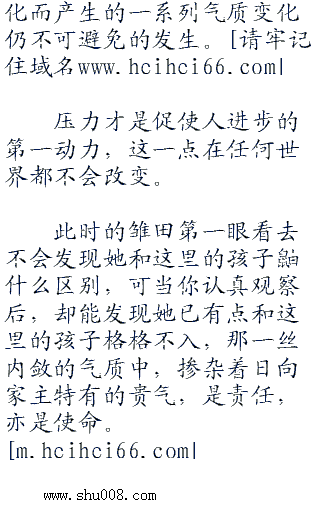 化而产生的一系列气质变化
仍不可避免的发生。[请牢记
住域名www.hcihci66.com|
压力才是促使人进步的
第一动力，这一点在任何世
界都不会改变。
此时的雏田第一眼看去
不会发现她和这里的孩子鼬
什么区别，可当你认真观察
后，却能发现她已有点和这
里的孩子格格不入，那一丝
内敛的气质中，掺杂着日向
家主特有的贵气，是责任，
亦是使命。
[m.hcihci66.com|
www.shu008.com